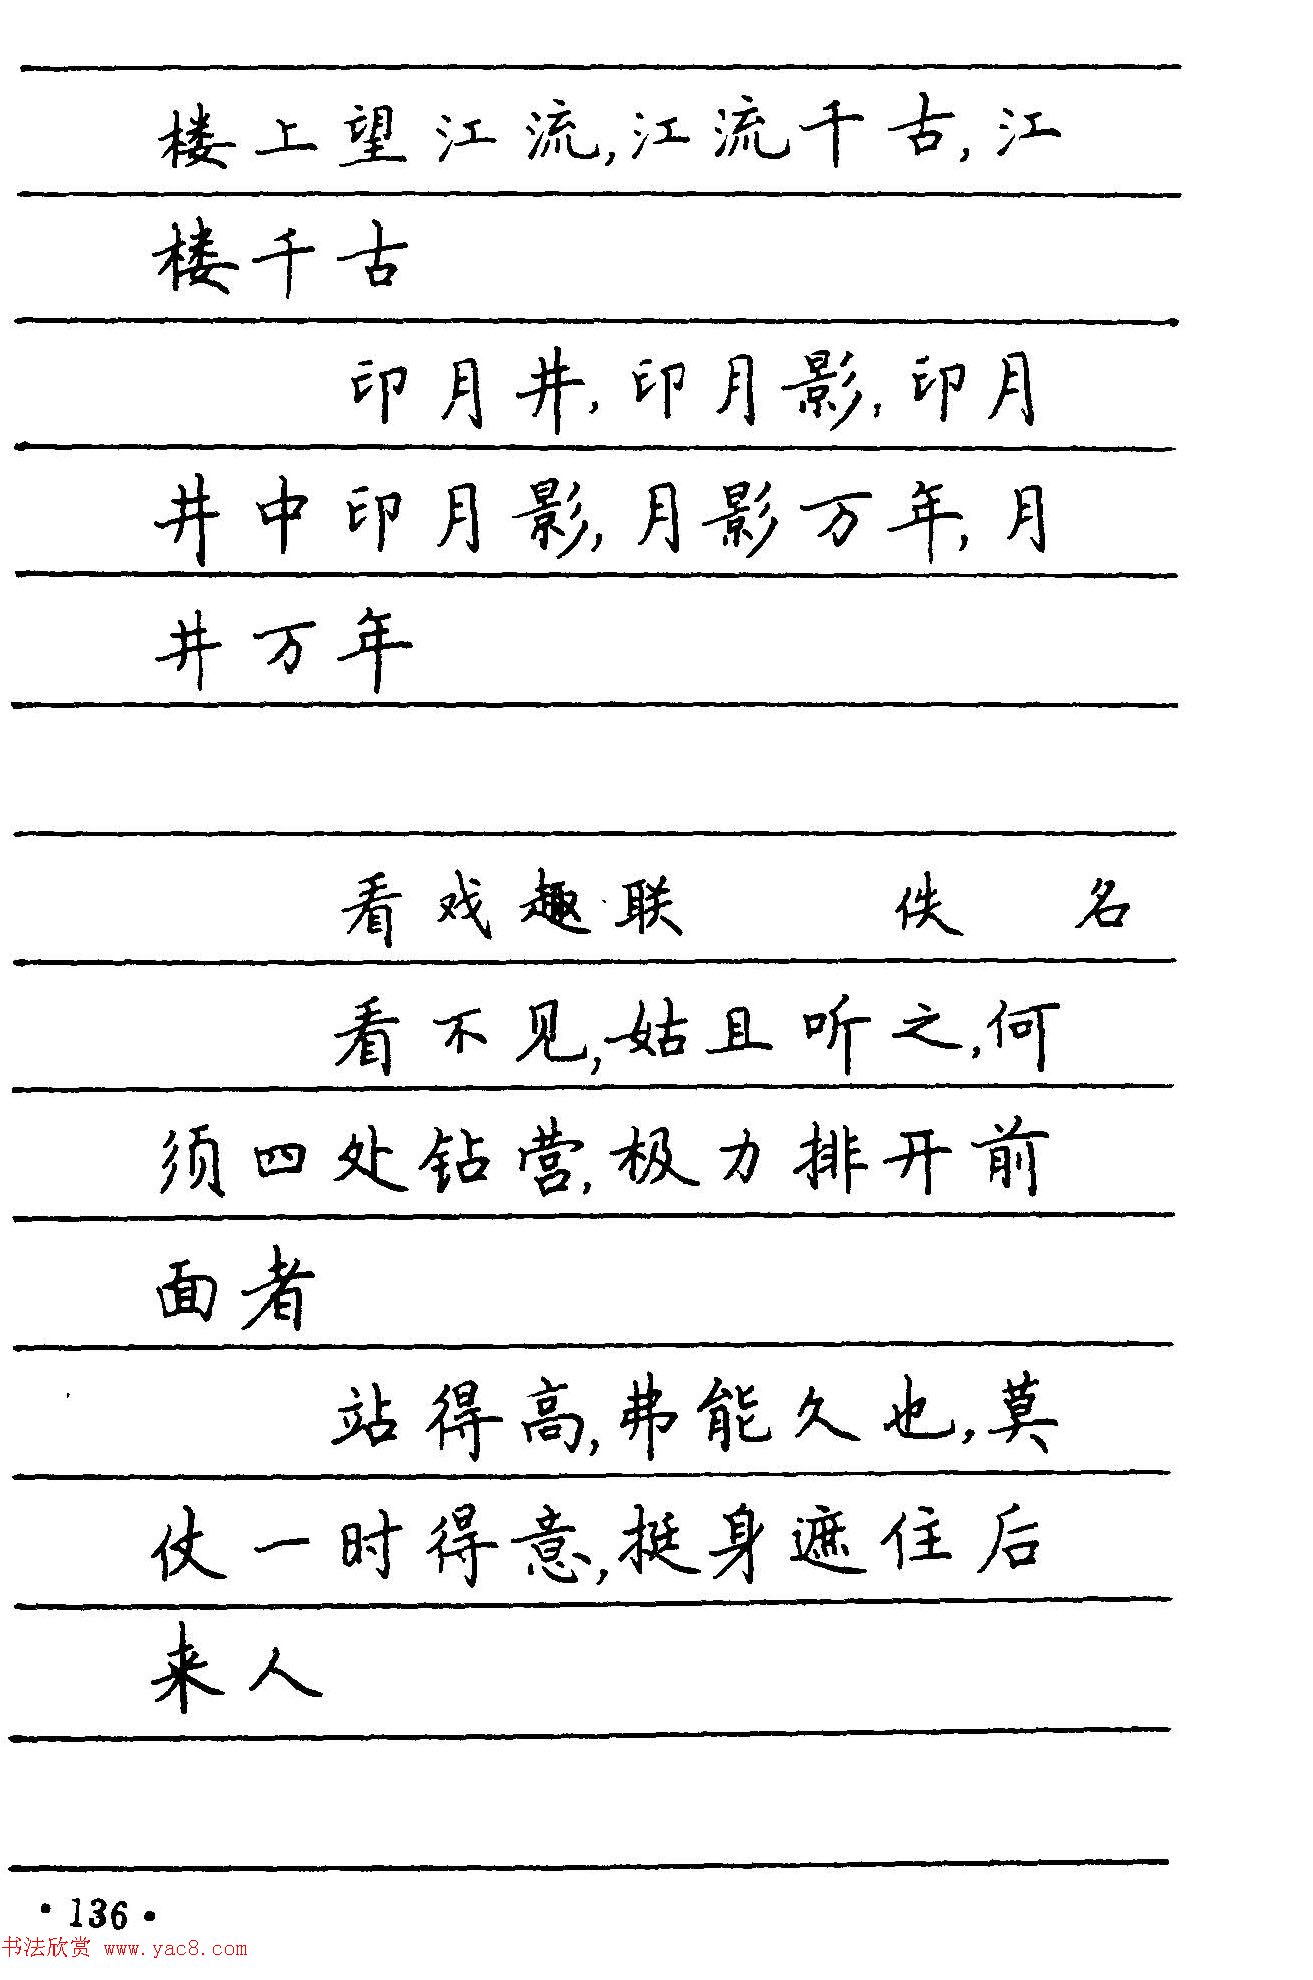 楼上望江流,江流千古,江
楼千古
印月井,印月影,印月
井中印月影,月影万年,月
井万年
看戏趣联 佚 名
看不见,姑且听之,何
须四处钻营,极力排开前
面者
站得高,弗能久也,莫
仗一时得意,挺身遮住后
来人
·136·
书法欣赏 www.yac8.com